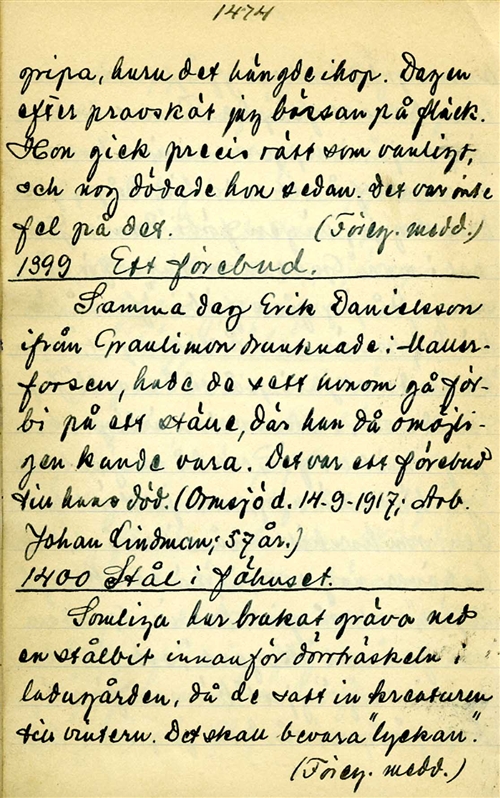 1474
gripa, huru det hängde ihop. Dagen
efter provskót jag bössan på fläck.
Hon gick precis rätt som vanligt,
och nog dödade hon sedan. Det var inte
fel på det. (Föreg. medd.)
1399 Ett förebud.
Samma dag Erik Danielsson
ifrån Graulimon drunknade i Maller-
forsen, hade de sett honom gå för-
bi på ett ställe, där han då omöjli-
gen kunde vara. Det var ett förebud
till hans död. (Ormsjö d. 14-9-1917; Arb.
Johan Lindman; 57 år.)
1400 Stål i fähuset.
Somliga har brukat gräva ned
en stålbit innanför dörrträskeln i
ladugården, då de satt in kreaturen
till vintern. Det skall bevara "lyckan".
(Föreg. medd.)